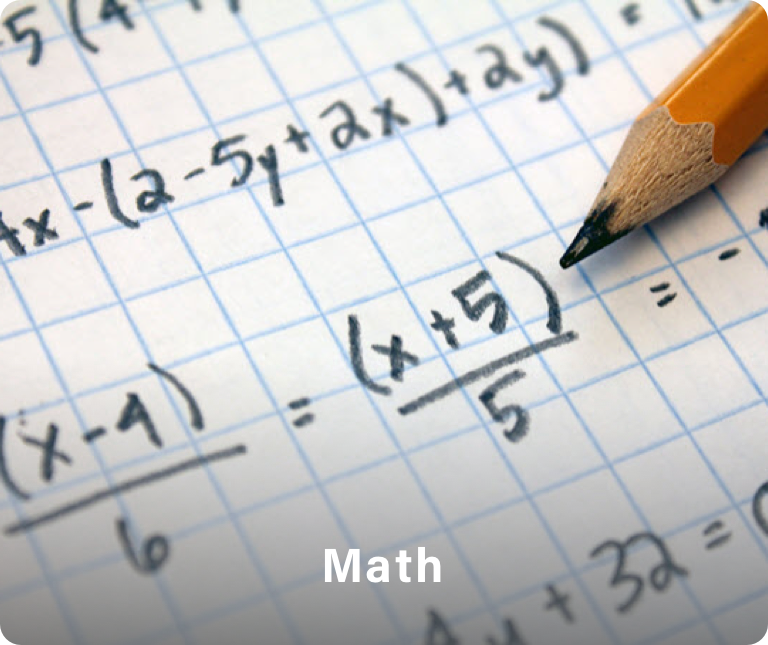 5(4
4x-(2-5y+2x)+2y) =
(x-4)/6 = (x+5)/5 = -
4y + 32 =
Math